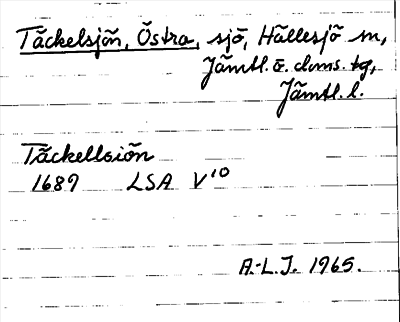 Täckelsjön, Östra, sjö, Hällesjö sn,
Jämtl. ö. doms. tg,
Jämtl. l.
Täckellsiön
1689 LSA V¹⁰
A.-L.J. 1965.